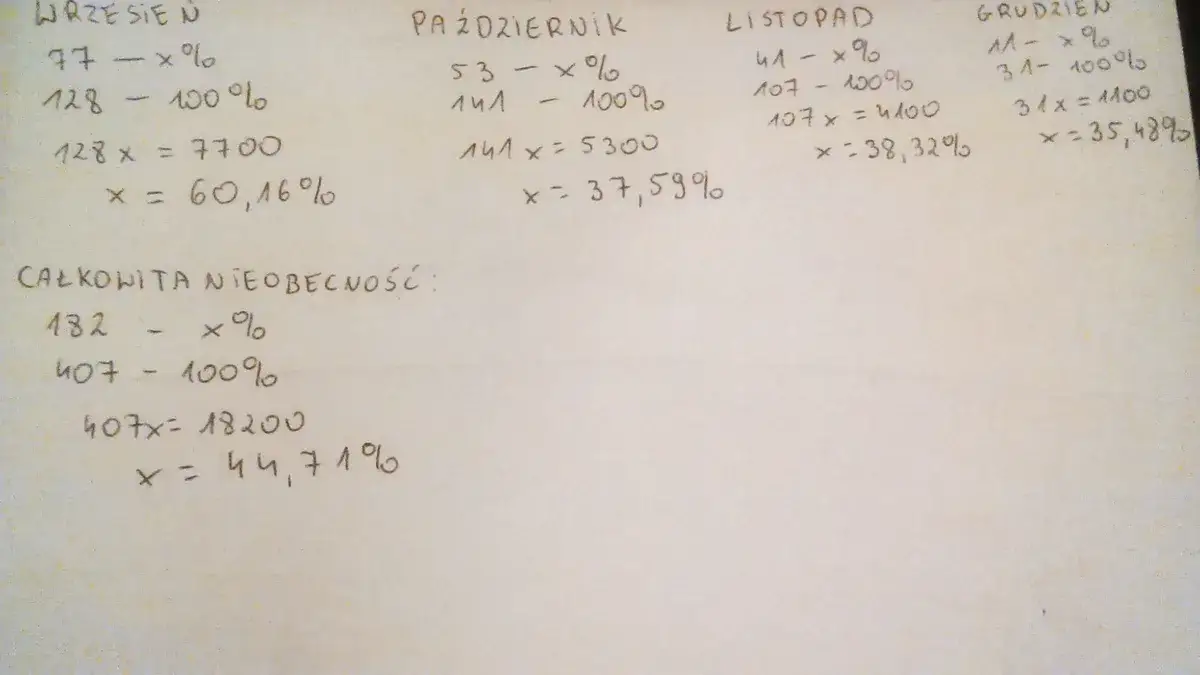 WRZESIEŃ
77 — x%
128 - 100%
128x = 7700
x = 60,16%
PAŹDZIERNIK
53 - x%
141 - 100%
141x = 5300
x = 37,59%
LISTOPAD
41 - x%
107 - 100%
107x = 4100
x = 38,32%
GRUDZIEŃ
11 - x%
31 - 100%
31x = 1100
x = 35,48%
CAŁKOWITA NIEOBECNOŚĆ:
182 - x%
407 - 100%
407x = 18200
x = 44,71%